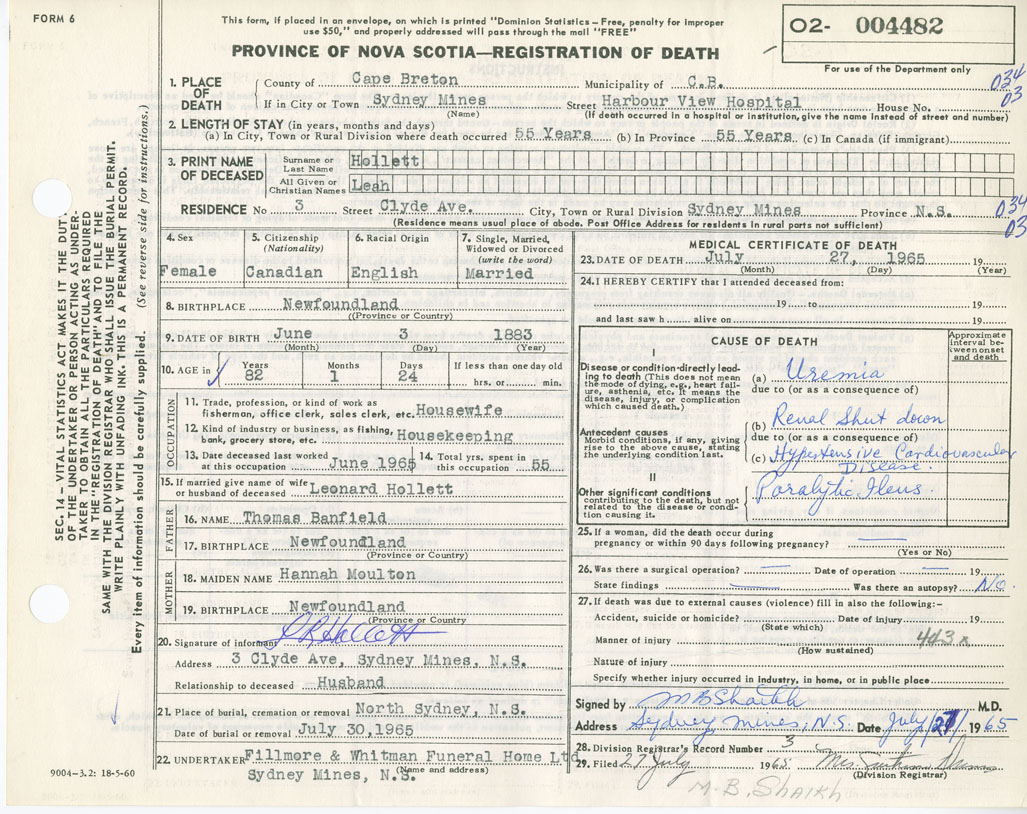 FORM 6
This form, if placed in an envelope, on which is printed "Dominion Statistics – Free, penalty for improper
use $50," and properly addressed will pass through the mail "FREE"
PROVINCE OF NOVA SCOTIA—REGISTRATION OF DEATH
02- 004482
For use of the Department only
1. PLACE OF DEATH
County of Cape Breton Municipality of C.B. 034
If in City or Town Sydney Mines Street Harbour View Hospital House No. 03
(Name) (If death occurred in a hospital or institution, give the name instead of street and number)
2. LENGTH OF STAY (in years, months and days)
(a) In City, Town or Rural Division where death occurred 55 Years (b) In Province 55 Years (c) In Canada (if immigrant)
3. PRINT NAME OF DECEASED
Surname or Last Name Hollett
All Given or Christian Names Leah
RESIDENCE No 3 Street Clyde Ave. City, Town or Rural Division Sydney Mines Province N.S. 034
(Residence means usual place of abode. Post Office Address for residents in rural parts not sufficient) 03
4. Sex
Female
5. Citizenship
(Nationality)
Canadian
6. Racial Origin
English
7. Single, Married,
Widowed or Divorced
(write the word)
Married
8. BIRTHPLACE Newfoundland
(Province or Country)
9. DATE OF BIRTH June 3 1883
(Month) (Day) (Year)
10. AGE in Years Months Days If less than one day old
82 1 24 hrs. or min.
OCCUPATION
11. Trade, profession, or kind of work as
fisherman, office clerk, sales clerk, etc. Housewife
12. Kind of industry or business, as fishing,
bank, grocery store, etc. Housekeeping
13. Date deceased last worked
at this occupation June 1965
14. Total yrs. spent in
this occupation 55
15. If married give name of wife
or husband of deceased Leonard Hollett
FATHER
16. NAME Thomas Banfield
17. BIRTHPLACE Newfoundland
(Province or Country)
MOTHER
18. MAIDEN NAME Hannah Moulton
19. BIRTHPLACE Newfoundland
(Province or Country)
20. Signature of informant Hollett
Address 3 Clyde Ave, Sydney Mines, N.S.
Relationship to deceased Husband
21. Place of burial, cremation or removal North Sydney, N.S.
Date of burial or removal July 30,1965
22. UNDERTAKER Fillmore & Whitman Funeral Home Ltd
Sydney Mines, N.S.
(Name and address)
MEDICAL CERTIFICATE OF DEATH
23. DATE OF DEATH July 27, 1965 19
(Month) (Day) (Year)
24. I HEREBY CERTIFY that I attended deceased from:
19 to 19
and last saw h alive on 19
CAUSE OF DEATH
Approximate
interval be-
tween onset
and death
I
Disease or condition directly lead-
ing to death (This does not mean
the mode of dying, e.g., heart fail-
ure, asthenia, etc. It means the
disease, injury, or complication
which caused death.)
(a) Uremia
due to (or as a consequence of)
(b) Renal Shut down
due to (or as a consequence of)
Antecedent causes
Morbid conditions, if any, giving
rise to the above cause, stating
the underlying condition last.
(c) Hypertensive Cardiovascular
Disease.
II
Other significant conditions
contributing to the death, but not
related to the disease or condi-
tion causing it.
Paralytic Ileus.
25. If a woman, did the death occur during
pregnancy or within 90 days following pregnancy?
(Yes or No)
26. Was there a surgical operation? Date of operation 19
State findings Was there an autopsy? No
27. If death was due to external causes (violence) fill in also the following:–
Accident, suicide or homicide? Date of injury 19
(State which)
Manner of injury 443x
(How sustained)
Nature of injury
Specify whether injury occurred in industry, in home, or in public place
Signed by MBShaikh M.D.
Address Sydney Mines, N.S. Date July/27/ 1965
28. Division Registrar's Record Number 3
29. Filed 27 July 1965 Mrs
(Division Registrar)
M.B. SHAIKH
SEC. 14 – VITAL STATISTICS ACT MAKES IT THE DUTY
OF THE UNDERTAKER OR PERSON ACTING AS UNDER-
TAKER TO OBTAIN ALL THE PARTICULARS REQUIRED
IN THE "REGISTRATION OF DEATH" AND TO FILE THE
SAME WITH THE DIVISION REGISTRAR WHO SHALL ISSUE THE BURIAL PERMIT.
WRITE PLAINLY WITH UNFADING INK. THIS IS A PERMANENT RECORD.
Every item of information should be carefully supplied. (See reverse side for instructions.)
9004-3.2: 18-5-60